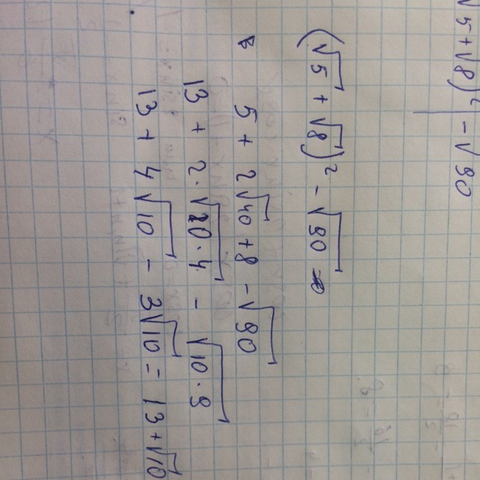 √5+√8)² - √90
(√5 + √8)² - √90
5 + 2√40 + 8 - √90
13 + 2·√10·4 - √10·9
13 + 4√10 - 3√10 = 13+√10